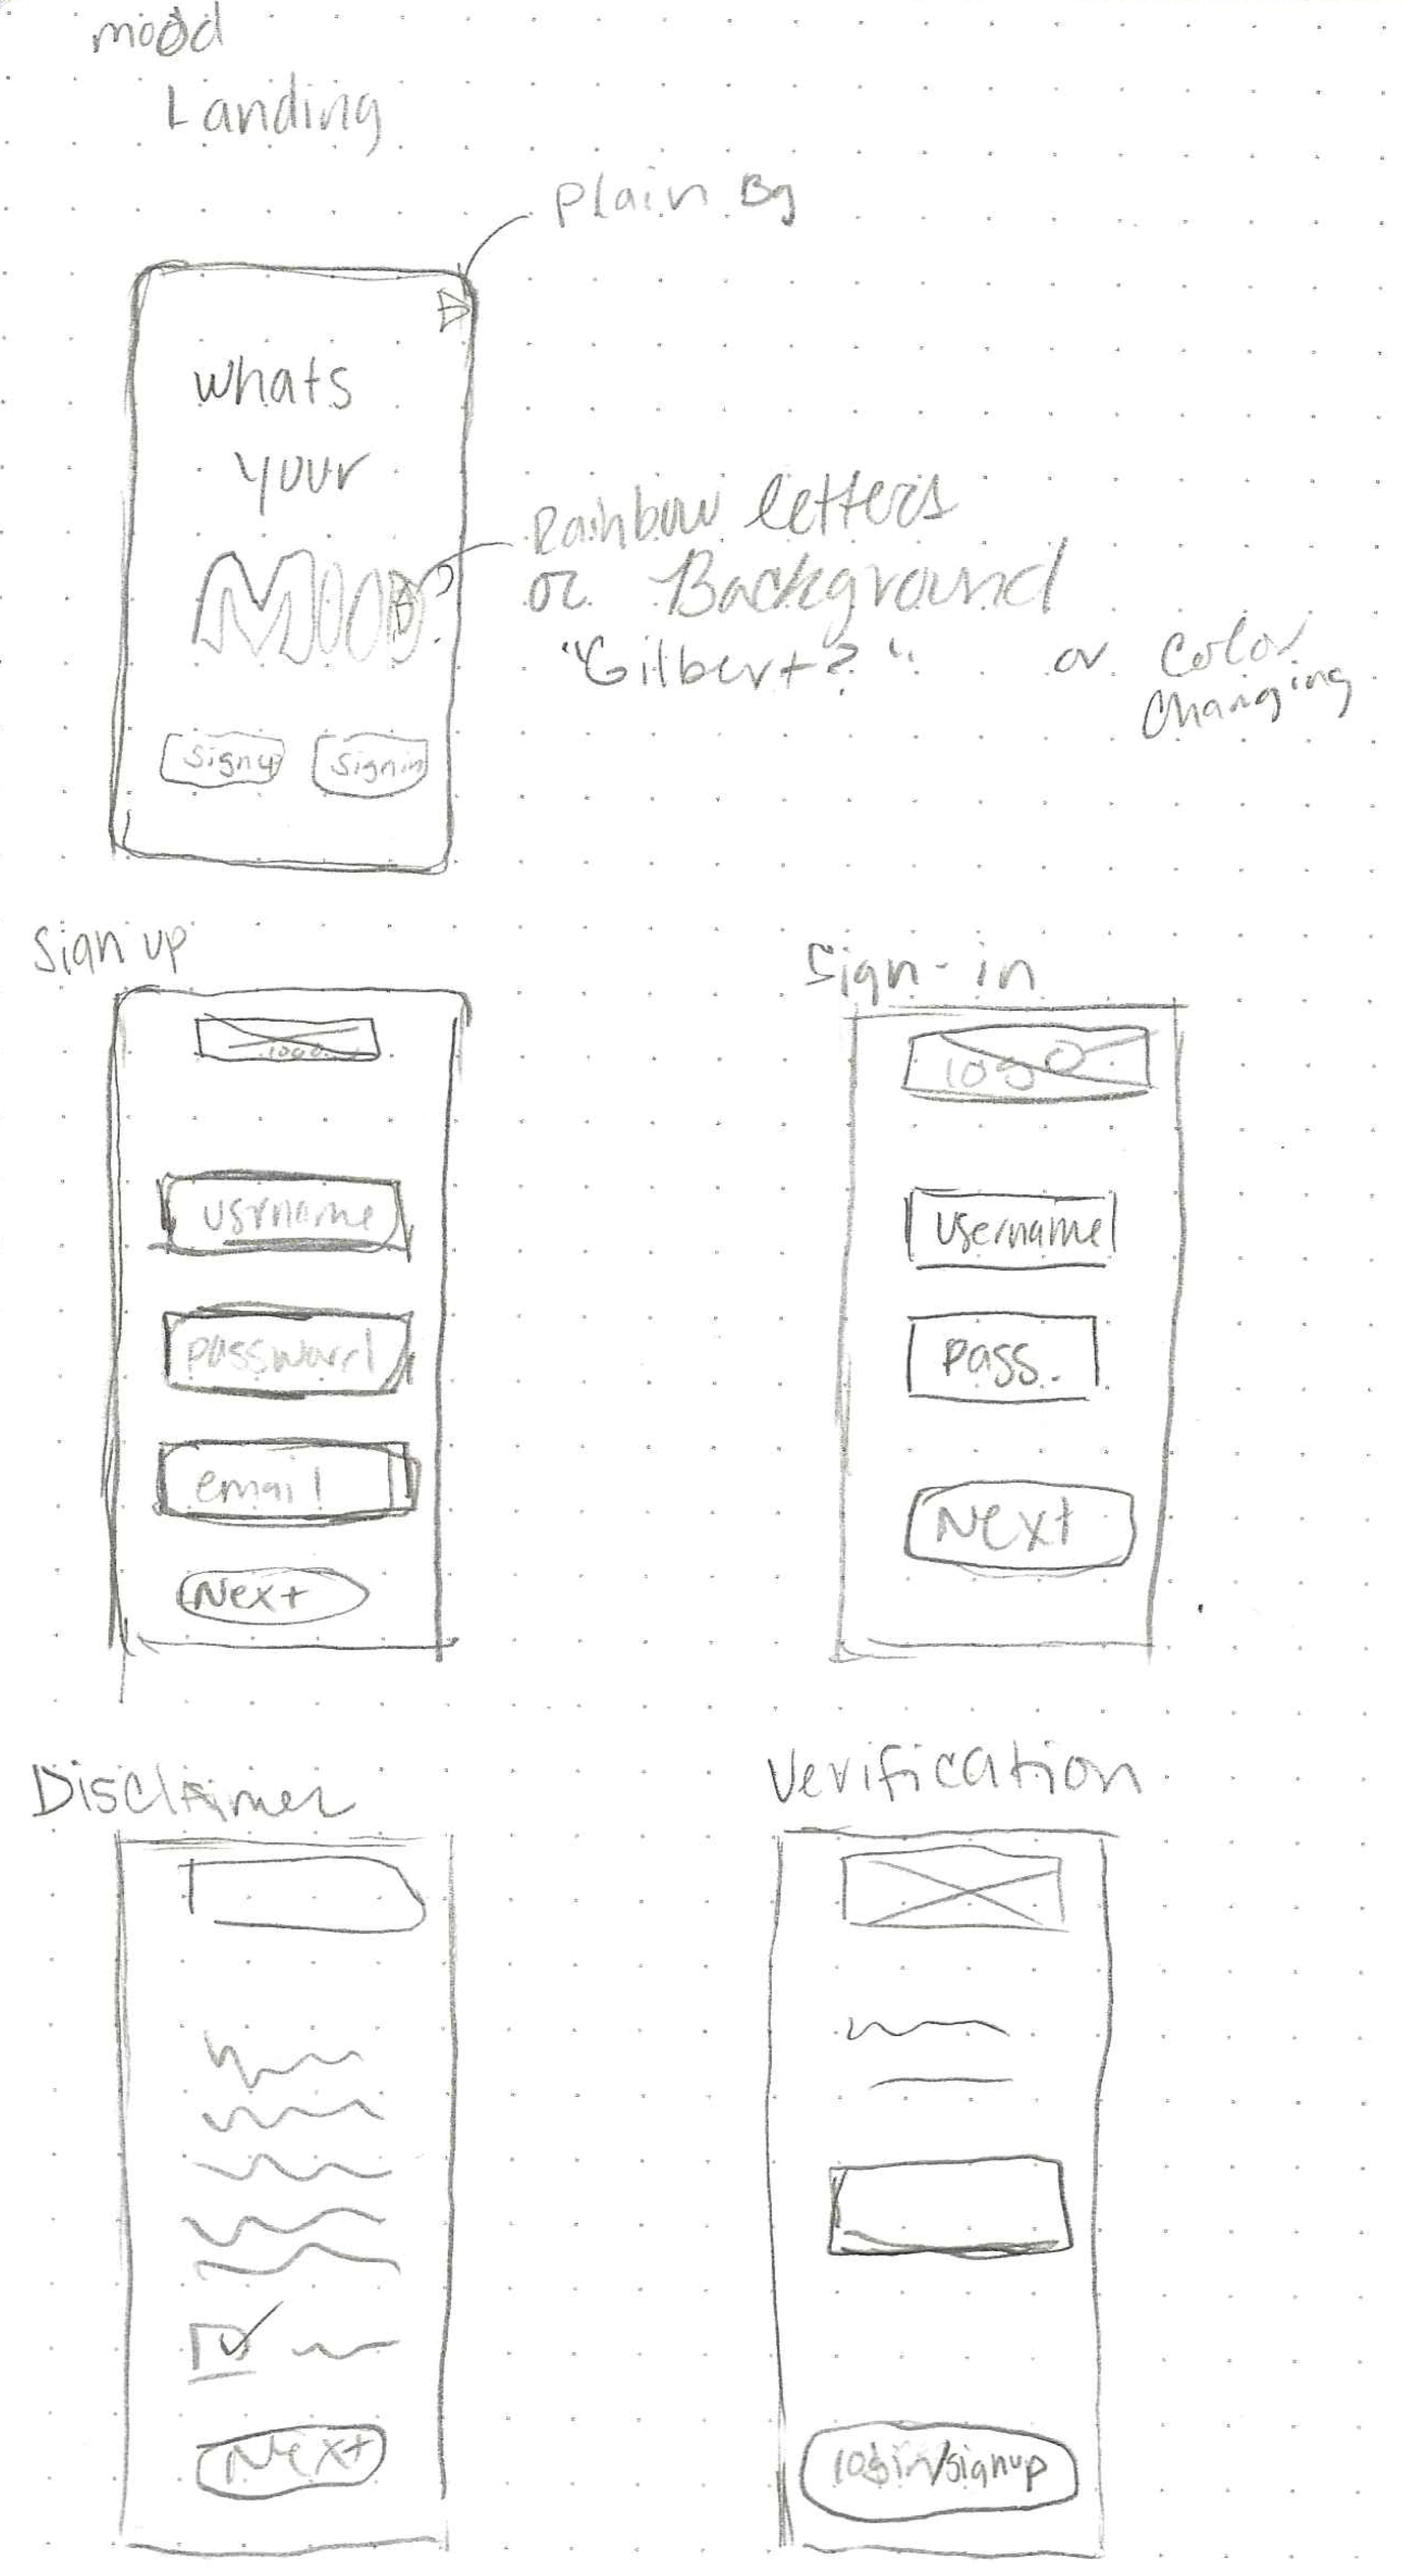 mood
Landing
plain Bg
whats
your
MOOD?
Rainbow letters
or Background
"Gilbert?"
or Color
Changing
Signup
Signin
Sign up
logo
usrname
password
email
Next
Sign-in
logo
username
pass.
Next
Disclaimer
Next
Verification
login/signup